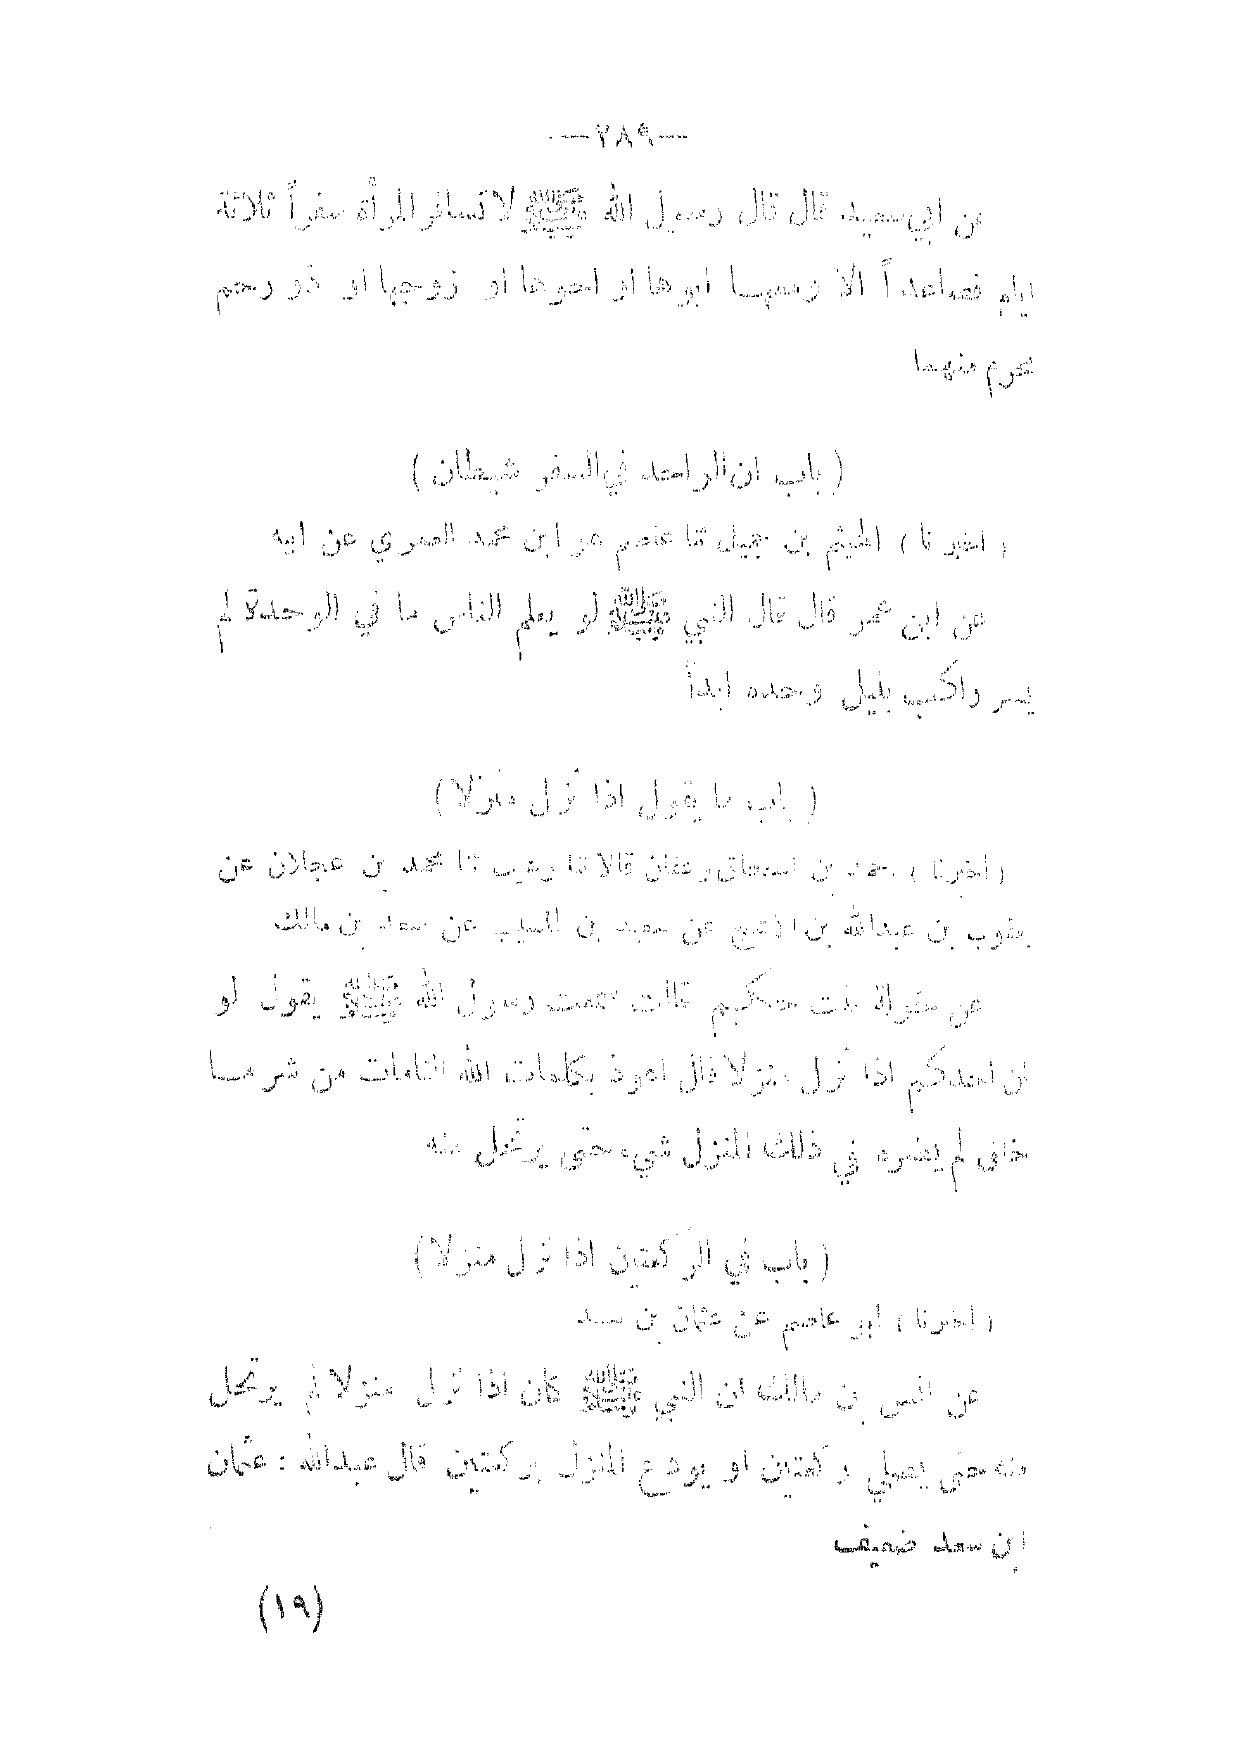 —٢٨٩—
عن ابي سعيد قال قال رسول الله ﷺ لا تسافر المرأة سفراً ثلاثة
ايام فصاعداً الا ومعهـا ابوها او اخوها او زوجها او ذو رحم
محرم منهما
( باب ان الواحد في السفر شيطان )
( اخبرنا ) الهيثم بن جميل ثنا عاصم هو ابن محمد العمري عن ابيه
عن ابن عمر قال قال النبي ﷺ لو يعلم الناس ما في الوحدة لم
يسر راكب بليل وحده ابداً
( باب ما يقول اذا نزل منزلا )
( أخبرنا ) احمد بن اسحاق وعفان قالا ثنا وهيب ثنا محمد بن عجلان عن
يعقوب بن عبدالله بن الاشج عن سعيد بن المسيب عن سعد بن مالك
عن خولة بنت حكيم قالت سمعت رسول الله ﷺ يقول لو
ان احدكم اذا نزل منزلا قال اعوذ بكلمات الله التامات من شر مـا
خلق لم يضره في ذلك المنزل شيء حتى يرتحل منه
( باب في الركعتين اذا نزل منزلا )
( أخبرنا ) أبو عاصم عن عثمان بن سعد
عن انس بن مالك ان النبي ﷺ كان اذا نزل منزلا لم يرتحل
منه حتى يصلي ركعتين او يودع المنزل بركعتين قال عبدالله : عثمان
ابن سعد ضعيف
(١٩)